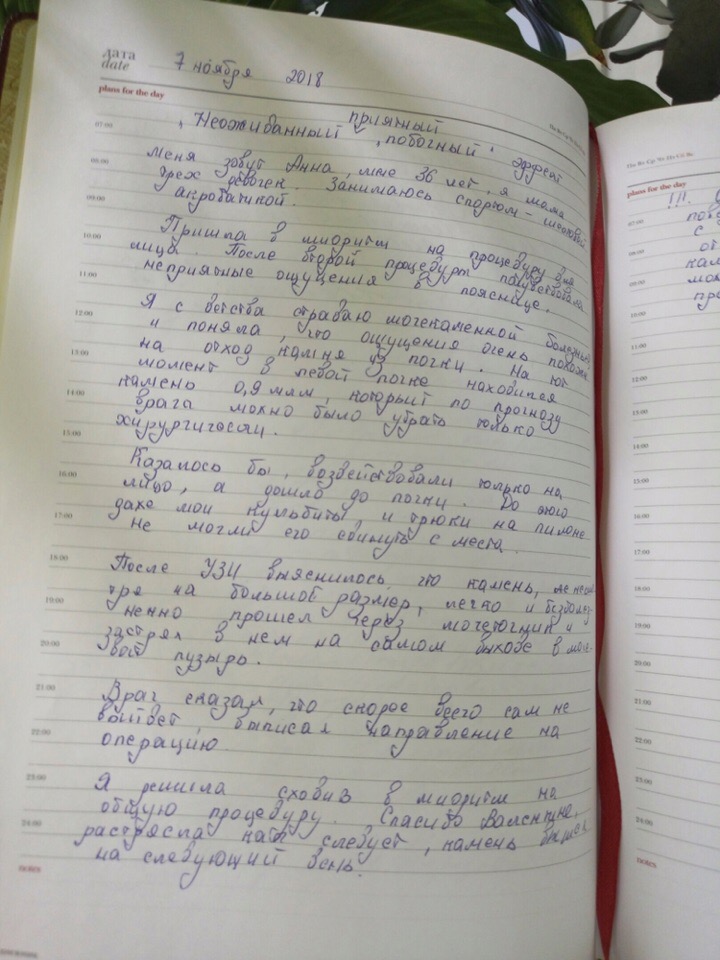 дата
date
7 ноября 2018
plans for the day
приятный
"Неожиданный "побочный" эффект
Меня зовут Анна, мне 36 лет, я мама
трех девочек. Занимаюсь спортом - шестовой
акробатикой.
Пришла в миоритм на процедуру для
лица. После второй процедуры почувствовала
неприятные ощущения в пояснице.
Я с детства страдаю мочекаменной болезнью
и поняла, что ощущения очень похожи
на отход камня из почки. На тот
момент в левой почке находился
камень 0,9 мм, который по прогнозу
врача можно было убрать только
хирургически.
Казалось бы, воздействовали только на
лицо, а дошло до почки. До этого
даже мои кульбиты, и трюки на пилоне
не могли его сдвинуть с места.
После УЗИ выяснилось, что камень, не смо-
тря на большой размер, легко и безболез-
ненно прошел через мочеточник и
застрял в нем на самом выходе в моче-
вой пузырь.
Врач сказал, что скорее всего сам не
выйдет, выписал направление на
операцию.
Я решила сходив в миоритм на
общую процедуру. Спасибо Валентине,
растрясла как следует, камень вышел
на следующий день.
07:00
08:00
09:00
10:00
11:00
12:00
13:00
14:00
15:00
16:00
17:00
18:00
19:00
20:00
21:00
22:00
23:00
24:00
notes
plans for the day
!!!
07:00
08:00
09:00
10:00
11:00
12:00
13:00
14:00
15:00
16:00
17:00
18:00
19:00
20:00
21:00
22:00
23:00
24:00
notes